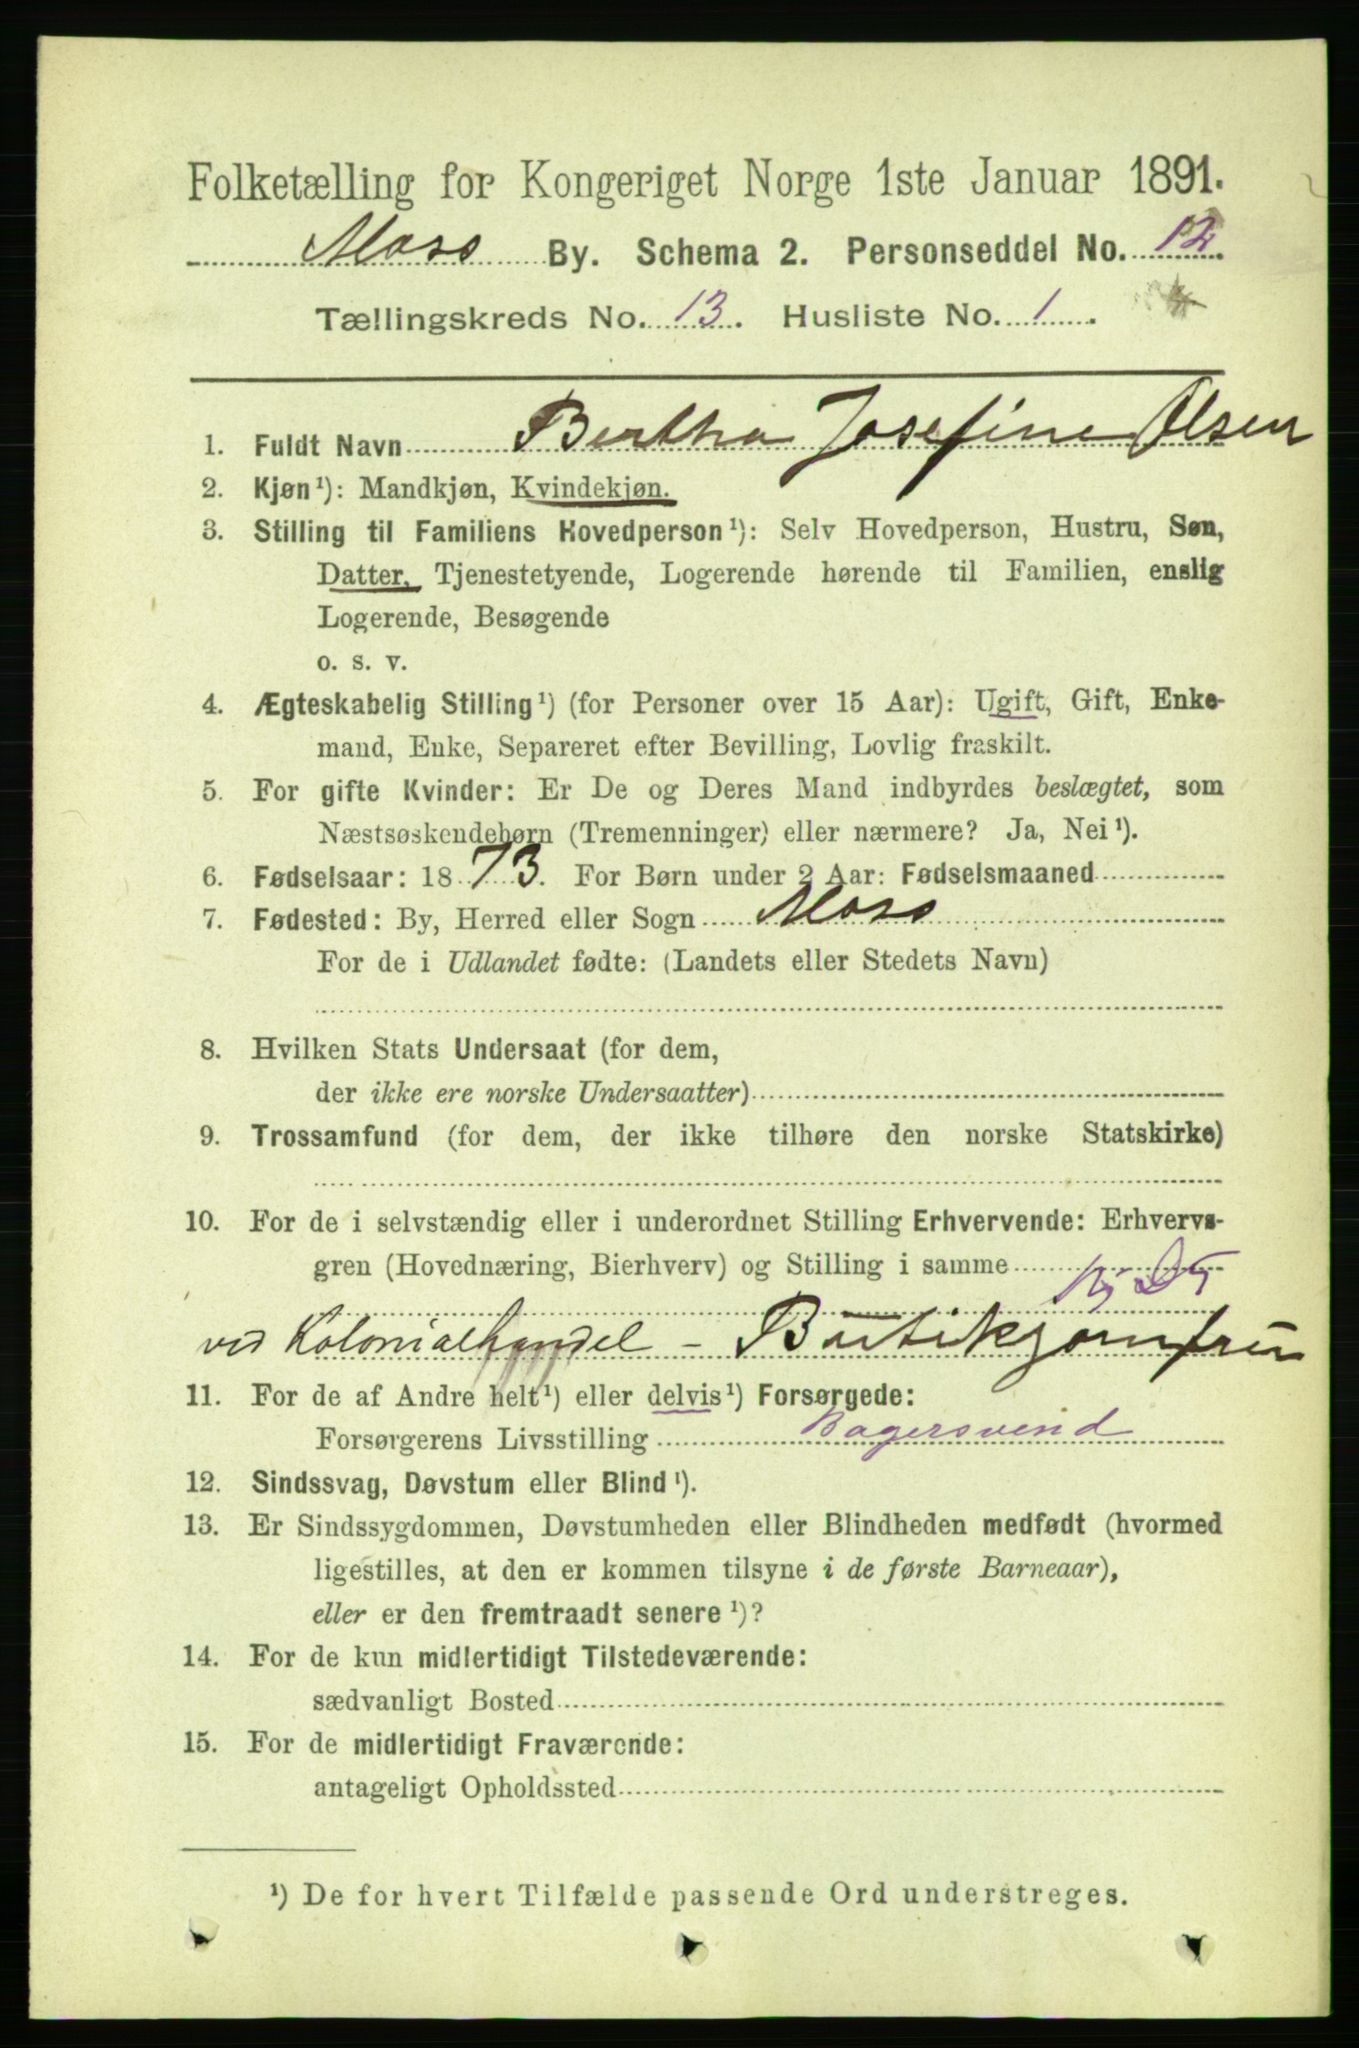 Folketælling for Kongeriget Norge 1ste Januar 1891.
Moss By. Schema 2. Personseddel No. 12
Tællingskreds No. 13. Husliste No. 1.
1. Fuldt Navn Bertha Josefine Olsen
2. Kjøn¹): Mandkjøn, Kvindekjøn.
3. Stilling til Familiens Hovedperson¹): Selv Hovedperson, Hustru, Søn,
Datter, Tjenestetyende, Logerende hørende til Familien, enslig
Logerende, Besøgende
o. s. v.
4. Ægteskabelig Stilling¹) (for Personer over 15 Aar): Ugift, Gift, Enke-
mand, Enke, Separeret efter Bevilling, Lovlig fraskilt.
5. For gifte Kvinder: Er De og Deres Mand indbyrdes beslægtet, som
Næstsøskendebørn (Tremenninger) eller nærmere? Ja, Nei¹).
6. Fødselsaar: 1873. For Børn under 2 Aar: Fødselsmaaned
7. Fødested: By, Herred eller Sogn Moss
For de i Udlandet fødte: (Landets eller Stedets Navn)
8. Hvilken Stats Undersaat (for dem,
der ikke ere norske Undersaatter)
9. Trossamfund (for dem, der ikke tilhøre den norske Statskirke)
10. For de i selvstændig eller i underordnet Stilling Erhvervende: Erhvervs-
gren (Hovednæring, Bierhverv) og Stilling i samme
ved Kolonialhandel - Butikjomfru
11. For de af Andre helt¹) eller delvis¹) Forsørgede:
Forsørgerens Livsstilling Bagersvend
12. Sindssvag, Døvstum eller Blind¹).
13. Er Sindssygdommen, Døvstumheden eller Blindheden medfødt (hvormed
ligestilles, at den er kommen tilsyne i de første Barneaar),
eller er den fremtraadt senere¹)?
14. For de kun midlertidigt Tilstedeværende:
sædvanligt Bosted
15. For de midlertidigt Fraværende:
antageligt Opholdssted
¹) De for hvert Tilfælde passende Ord understreges.